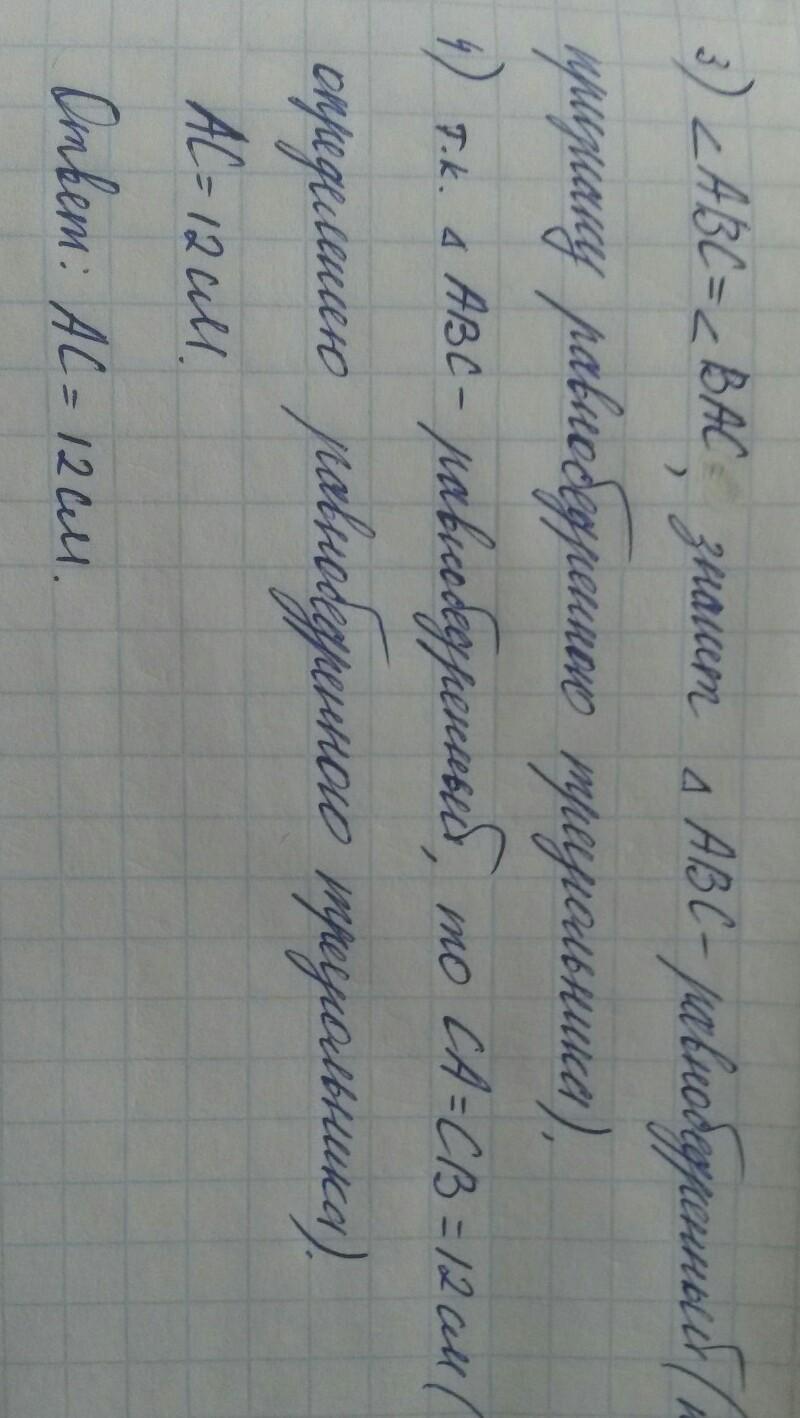 3) ∠ABC = ∠BAC, значит △ ABC - равнобедренный (п
признаку равнобедренного треугольника),
4) т.к. △ ABC - равнобедренный, то CA = CB = 12 см (
определению равнобедренного треугольника).
AC = 12 см.
Ответ: AC = 12 см.